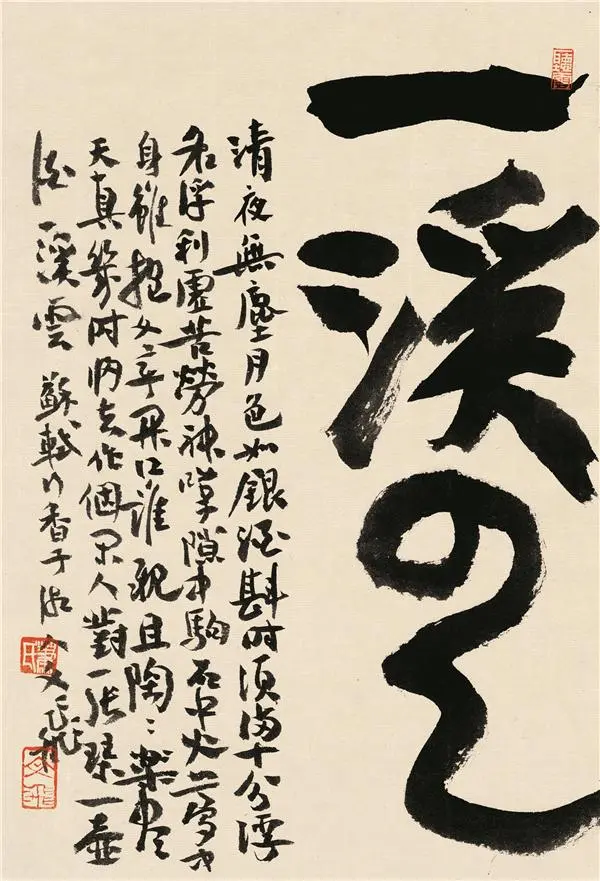 一溪云
清夜無塵月色如銀酒斟時須滿十分浮
名浮利虛苦勞神嘆隙中駒石中火夢中
身雖抱文章開口誰親且陶〻樂尽
天真幾時歸去作個閑人對一張琴一壺
酒一溪雲 蘇軾行香子 文飛
蕭氏